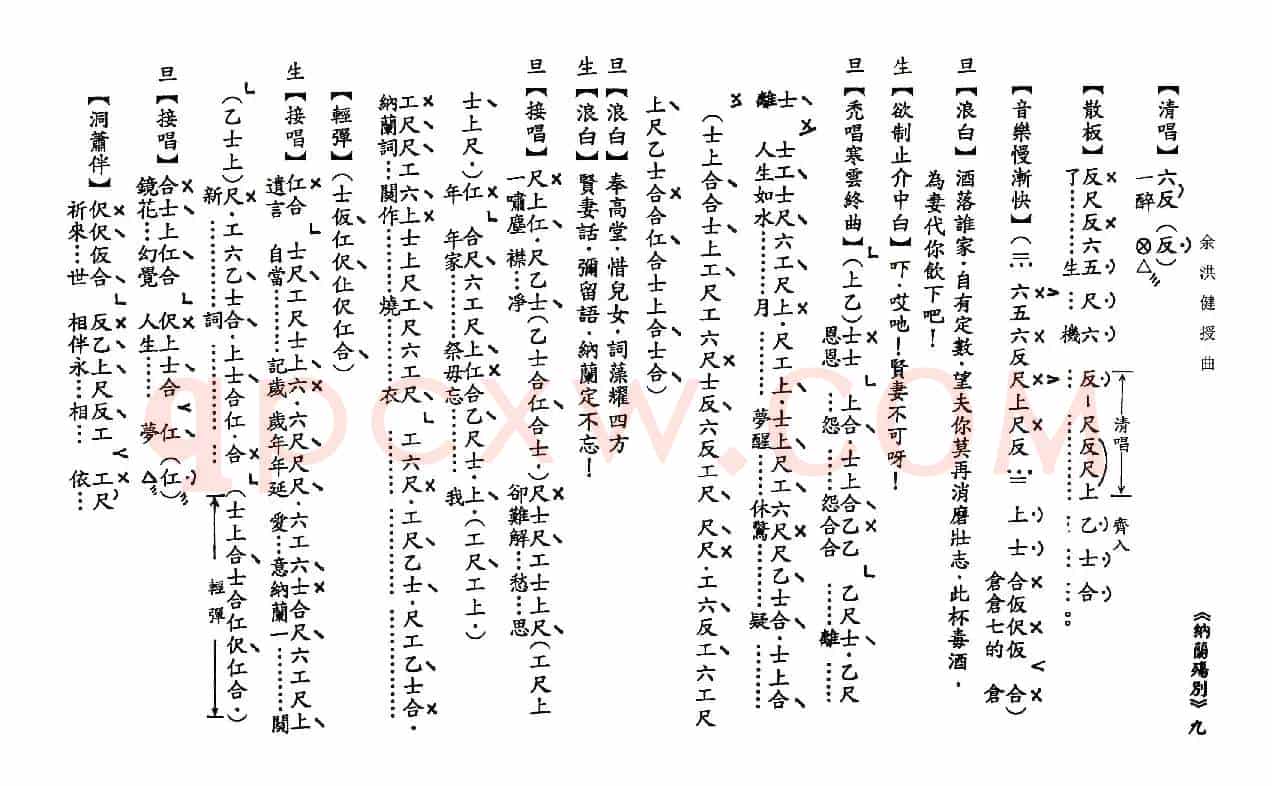 余洪健授曲
《納蘭殤別》九
【清唱】六反（反）
一醉
【散板】反尺反六五 尺六 反一尺反尺上乙士合
了……生…機……。
清唱
齊入
【音樂慢漸快】（三 六五六反尺上尺反 三 上士合仮伬仮 合）
倉倉七的 倉
旦【浪白】酒落誰家．自有定數．望夫你莫再消磨壯志．此杯毒酒．
為妻代你飲下吧！
生【欲制止介中白】吓．哎吔！賢妻不可呀！
旦【禿唱寒雲終曲】（上乙）士士 上合．士上合乙乙 乙尺士．乙尺
恩恩…怨…怨合合 離
士 士工士尺六工尺上．尺工上．士上尺工六尺尺乙士合．士上合
離 人生如水……月 夢醒……休驚……疑
（士上合合士上工尺工六尺士反六反工尺 尺尺．工六反工六工尺
上尺乙士合合仜合士上合士合）
旦【浪白】奉高堂．惜兒女．詞藻耀四方
生【浪白】賢妻話．彌留語．納蘭定不忘！
旦【接唱】尺上仜．尺乙士（乙士合仜合士．）尺士尺工士上尺（工尺上
一嘯塵 襟…凈 卻難解…愁…思
士上尺．）仜 合尺六工尺上仜合乙尺士．上．（工尺工上．）
年 年家………祭毋忘……我
工尺尺工六上士上尺工尺六工尺 工六尺．工尺乙士．尺工乙士合．
納蘭詞…闋作……燒……衣
【輕彈】（士仮仜伬仩伬仜合）
生【接唱】仜合 士尺工尺士上六．六尺尺尺．六工六士合尺六工尺上
遺言 自當……記歲 歲年年延 愛…意納蘭一……闋
（乙士上）尺．工六乙士合．上士合仜．合 （士上合士合仜伬仜合．）
新………詞………
輕彈
旦【接唱】合士上仜合 伬上士合 仜（仜）
鏡花…幻覺 人生… 夢
【洞簫伴】伬伬仮合 反乙上尺反工 工尺
祈來…世 相伴永…相… 依…
qpcxw.com